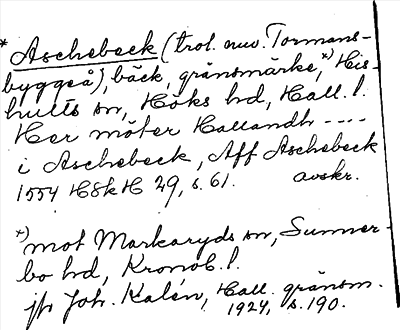 * Aschebeck (trol. nuv. Tormans-
byggeå), bäck, gränsmärke,*) His-
hults sn, Höks hd, Hall. l.
Her möter Hallandh ----
i Aschebeck, Aff Aschebeck
1554 HSkH 29, s. 61. avskr.
*) mot Markaryds sn, Sunner-
bo hd, Kronob. l.
jfr Joh. Kalén, Hall. gränsm.
1924, s. 190.